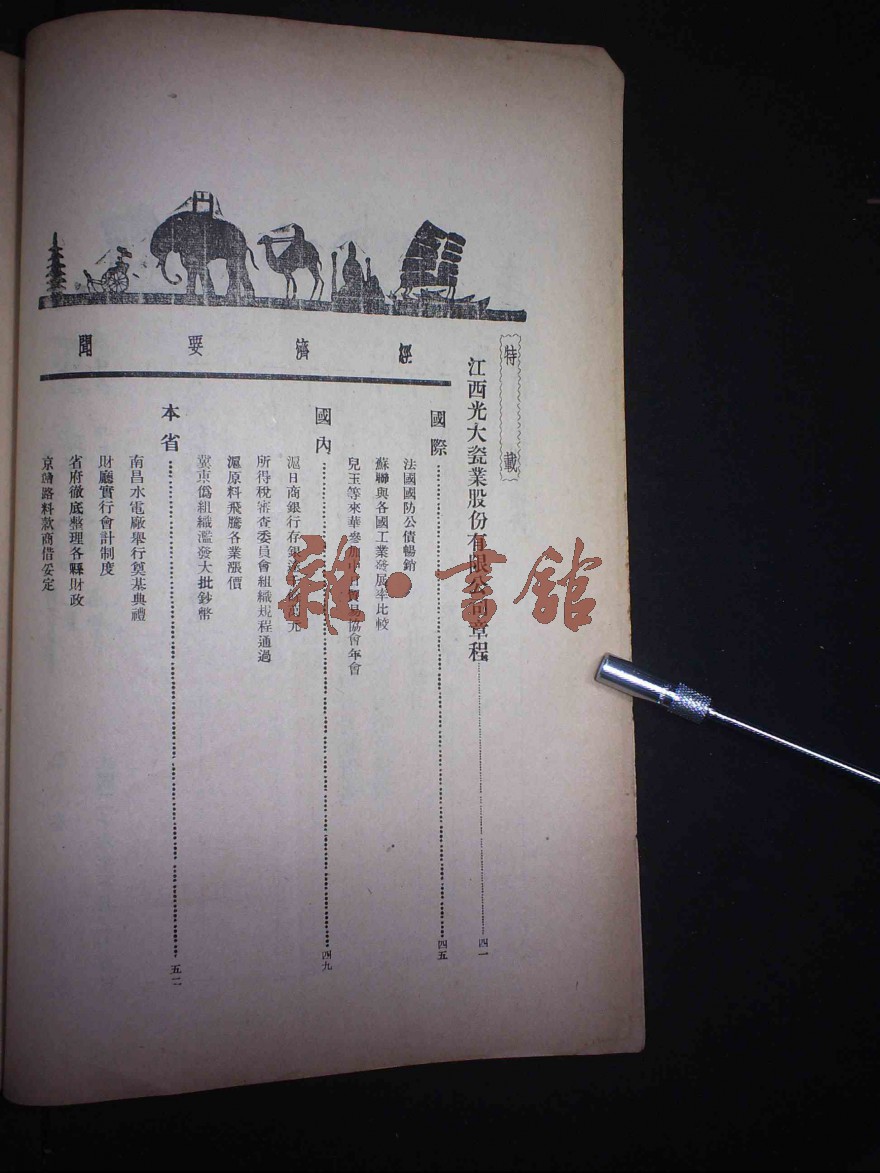 特載
江西光大瓷業股份有限公司章程 四一
經濟要聞
國際 四五
法國國防公債暢銷
蘇聯與各國工業發展率比較
兒玉等來華參加中日貿易協會年會
國內 四九
滬日商銀行存銀
所得稅審查委員會組織規程通過
滬原料飛騰各業漲價
冀東僞組織濫發大批鈔幣
本省 五二
南昌水電廠舉行奠基典禮
財廳實行會計制度
省府徹底整理各縣財政
京贛路料款商借妥定
雜·書館